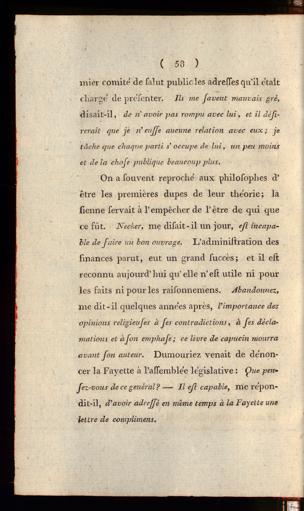 ( 58 )
mier comité de ſalut public les adreſſes qu'il était
chargé de préſenter. Ils me ſavent mauvais gré,
disait-il, de n'avoir pas rompu avec lui, et il déſi-
rerait que je n'euſſe aucune relation avec eux; je
tâche que chaque parti s'occupe de lui, un peu moins
et de la choſe publique beaucoup plus.
On a ſouvent reproché aux philoſophes d'
être les premières dupes de leur théorie; la
ſienne ſervait à l'empêcher de l'être de qui que
ce fût. Necker, me diſait-il un jour, eſt incapa-
ble de faire un bon ouvrage. L'adminiſtration des
finances parut, eut un grand ſuccès; et il eſt
reconnu aujourd'hui qu'elle n'eſt utile ni pour
les faits ni pour les raiſonnemens. Abandonnez,
me dit-il quelques années après, l'importance des
opinions religieuſes à ſes contradictions, à ſes décla-
mations et à ſon emphaſe; ce livre de capucin mourra
avant ſon auteur. Dumouriez venait de dénon-
cer la Fayette à l'aſſemblée légiſlative: Que pen-
ſez-vous de ce général? — Il eſt capable, me répon-
dit-il, d'avoir adreſſé en même temps à la Fayette une
lettre de complimens.